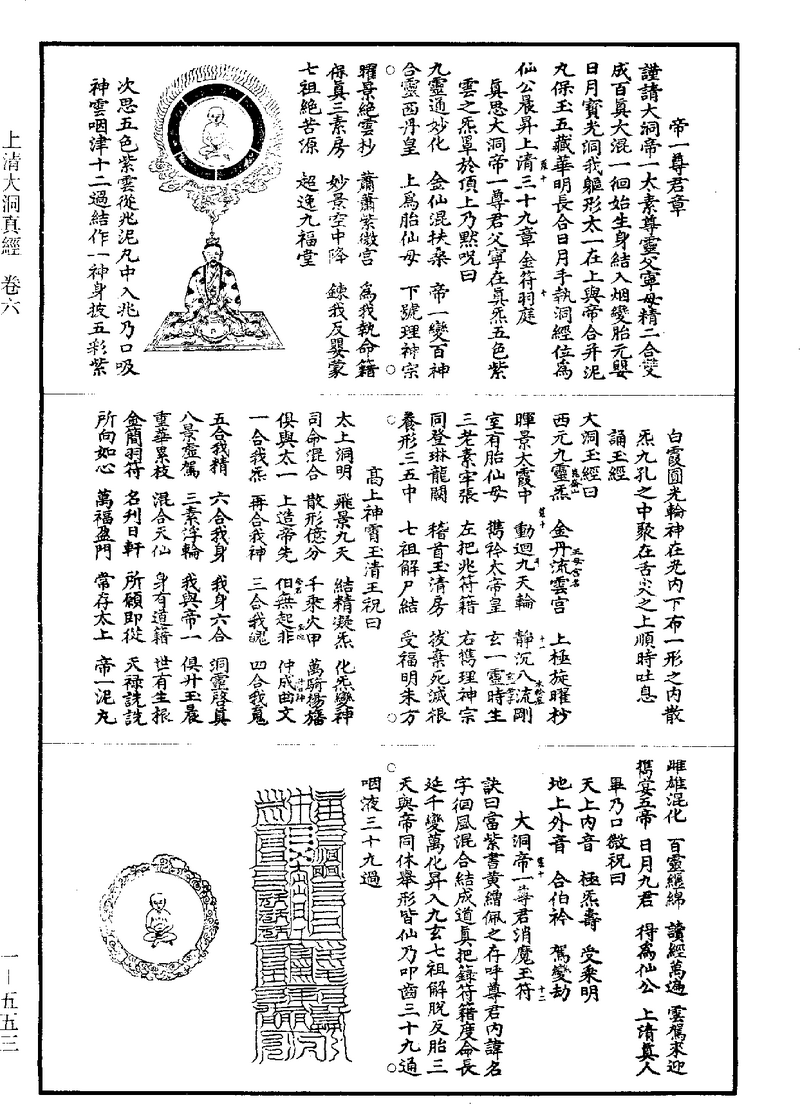 上清大洞真經 卷六
一—五五三
帝一尊君章
謹請大洞帝一太素尊靈父寧母精二合變
成百真大混一徊始生身結入烟變胎元嬰
日月寶光洞我軀形太一在上與帝合并泥
丸保玉五藏華明長合日月手執洞經位為
仙公晨昇上清三十九章金符羽庭
真思大洞帝一尊君父寧在真炁五色紫
雲之炁罩於頂上乃默呪曰
九靈通妙化 金仙混扶桑 帝一變百神
合靈西丹皇 上為胎仙母 下號理神宗
曜景絶雲杪 蕭蕭紫微宮 為我執命籍
保真三素房 妙景空中降 鍊我反嬰蒙
七祖絶苦源 超逸九福堂
次思五色紫雲從兆泥丸中入兆乃口吸
神雲咽津十二過結作一神身披五彩紫
白霞圓光輪神在光内下布一形之内散
炁九孔之中聚在舌尖之上順時吐息
誦玉經
大洞玉經曰
西元九靈炁 金丹流雲宮 上極旋曜杪
暉景大霞中 動迴九天輪 靜沉八流剛
室有胎仙母 攜衿太帝皇 玄一靈時生
三老素牢張 左把兆符籍 右攜理神宗
同登琳龍闕 稽首玉清房 拔棄死滅根
養形三五中 七祖解尸結 受福明朱方
高上神霄玉清王祝曰
太上洞明 飛景九天 結精凝炁 化炁變神
司命混合 散形億分 千乘火甲 萬騎揚旛
俱與太一 上造帝先 伯無起非 仲成曲文
一合我炁 再合我神 三合我魄 四合我䰟
五合我精 六合我身 我身六合 洞靈啓真
八景虛駕 三素浮輪 我與帝一 俱升玉晨
重華累枝 混合天仙 身有道籍 世有生根
金簡羽符 名刋日軒 所願即從 天禄詵詵
所向如心 萬福盈門 常存太上 帝一泥丸
雌雄混化 百靈纏綿 讀經萬遍 雲駕來迎
攜宴五帝 日月九君 得為仙公 上清真人
畢乃口微祝曰
天上内音 極炁壽 受乘明
地上外音 合伯衿 駕變劫
大洞帝一尊君消魔王符
訣曰當紫書黄繒佩之存呼尊君内諱名
字徊風混合結成道真把籙符籍度命長
延千變萬化昇入九玄七祖解脱反胎三
天與帝同休舉形皆仙乃叩齒三十九通
咽液三十九過